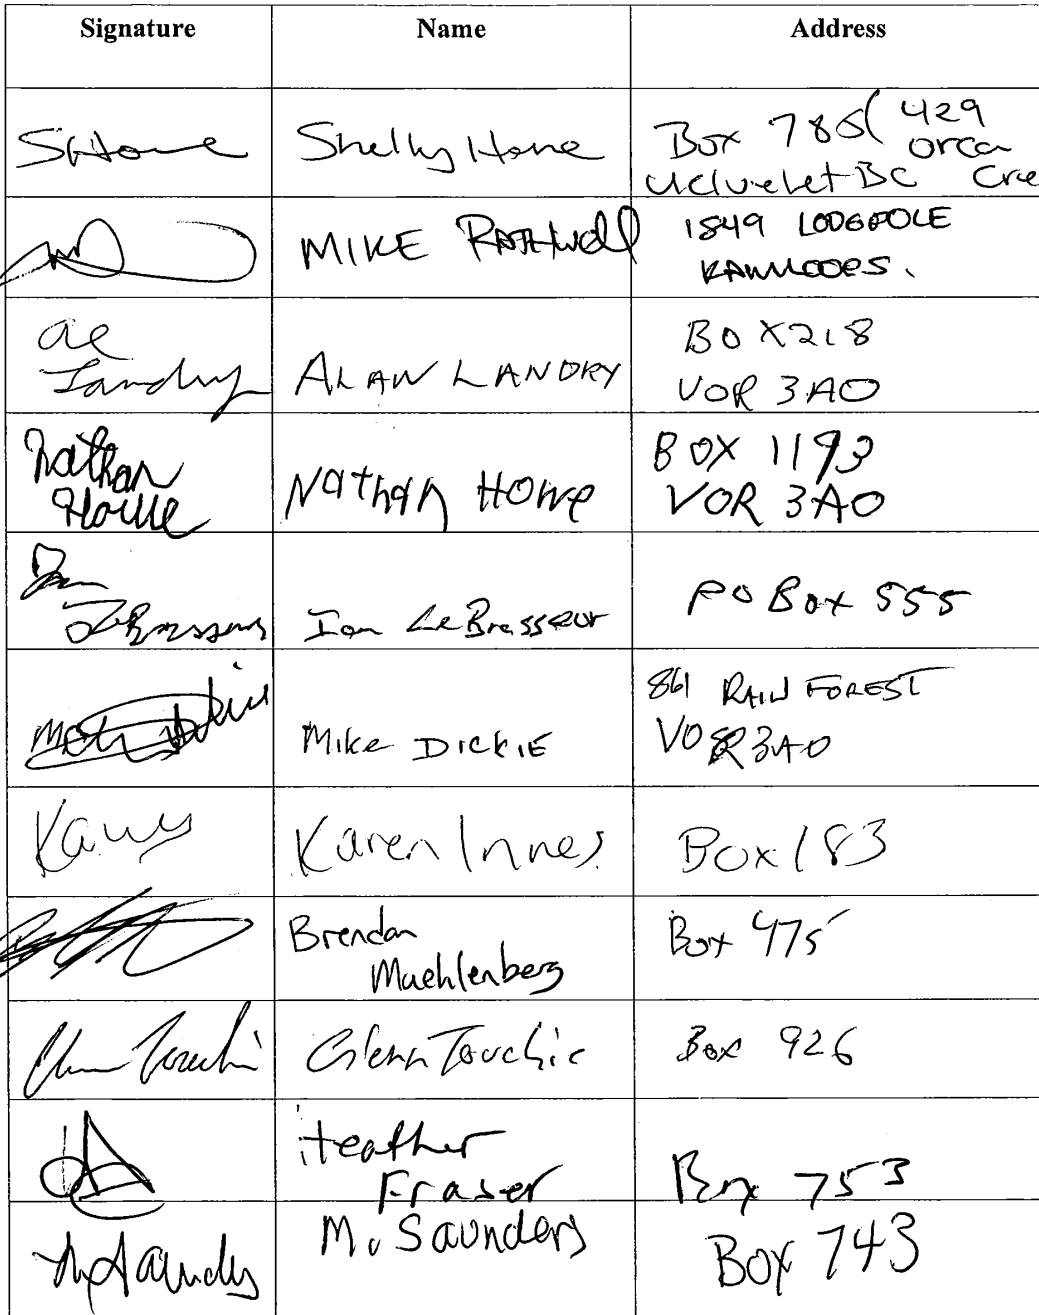 Signature Name Address
SHowe Shelly Howe Box 786( 429
orca
Ucluelet BC Cre
MIKE RATHWell 1849 LODGEPOLE
KAMLOOPS.
al
Landry ALAN LANDRY BOX 218
VOR 3A0
Nathan
Howe Nathan Howe BOX 1193
VOR 3A0
Ian
LeBrasseur Ian LeBrasseur PO Box 555
Mike DICKIE 861 RAIN FOREST
VOR 3A0
Karen Innes Box 183
Brendan
Muehlenberg Box 475
Glenn Touchie Box 926
Heather
Fraser Box 753
M Saunders M. Saunders Box 743